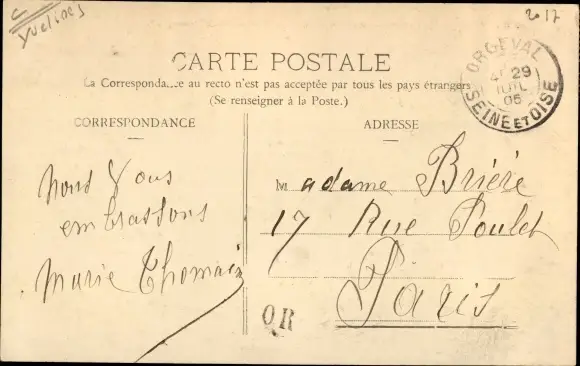 Yvelines
2017
CARTE POSTALE
La Correspondance au recto n'est pas acceptée par tous les pays étrangers
(Se renseigner à la Poste.)
CORRESPONDANCE
ADRESSE
ORGEVAL
29
JUIL
05
SEINE ET OISE
nous vous
embrassons
Marie Thomain
Madame Brière
17 Rue Poulet
Paris
OR